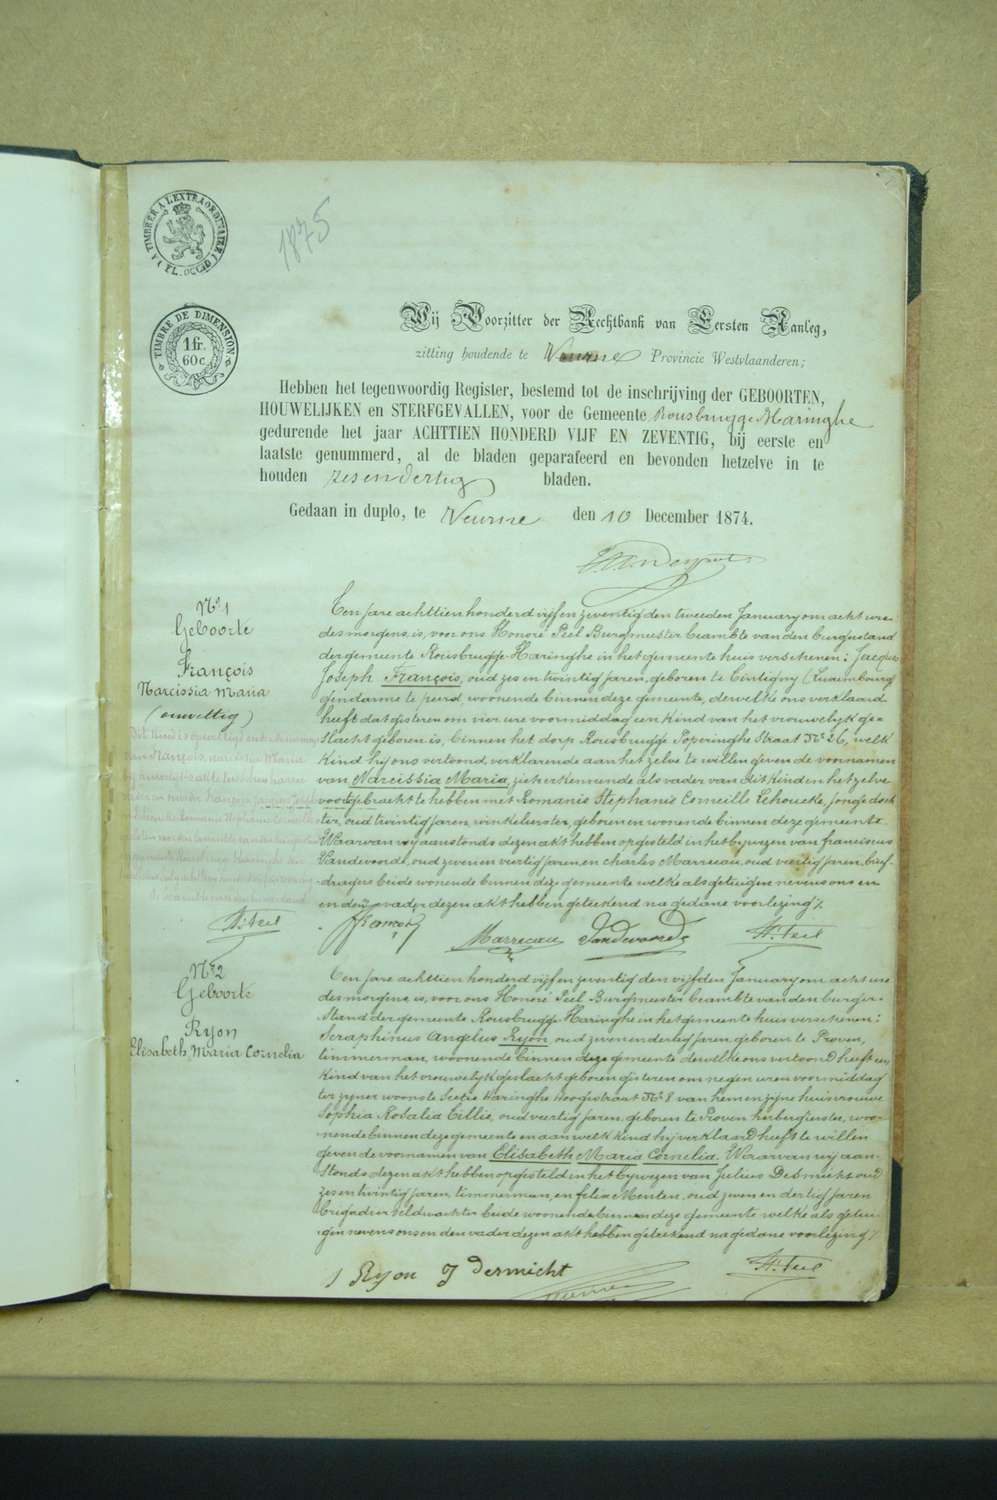 TIMBRE A L'EXTRAORDINAIRE
FL. OCCID.
1875
TIMBRE DE DIMENSION
1 fr.
60 c.
Wij Voorzitter der Rechtbank van Eersten Aanleg,
zitting houdende te Veurne Provincie Westvlaanderen;
Hebben het tegenwoordig Register, bestemd tot de inschrijving der GEBOORTEN,
HOUWELIJKEN en STERFGEVALLEN, voor de Gemeente Rousbrugge Haringhe
gedurende het jaar ACHTTIEN HONDERD VIJF EN ZEVENTIG, bij eerste en
laatste genummerd, al de bladen geparafeerd en bevonden hetzelve in te
houden zesendertig bladen.
Gedaan in duplo, te Veurne den 10 December 1874.
N° 1
Geboorte
François
Narcissia Maria
(onwettig)
Ten jare achttienhonderd vijf en zeventig den tweeden January om acht uren
desmorgens, is, voor ons Honoré Peel Burgmeester beambte van den burgerstand
der gemeente Rousbrugge-Haringhe in het gemeente huis verschenen: Jacques
Joseph François, oud zes en twintig jaren, geboren te Tintigny (Luxemburg)
gendarme te peerd, woonende binnen deze gemeente, dewelke ons verklaard
heeft dat gisteren om vier ure voormiddag een kind van het vrouwelijk ge-
slacht geboren is, binnen het dorp Rousbrugge Poperinghe Straat N° 26, welk
kind hij ons vertoond, verklarende aan hetzelve te willen geven de voornamen
van Narcissia Maria, zich erkennende als vader van dit kind en hetzelve
voortgebracht te hebben met Romanie Stephanie Corneille Lehoucke, jonge doch-
ter, oud twintig jaren, winkelierster, geboren en wonende binnen deze gemeente.
Waarvan wij aanstonds dezen akt hebben opgesteld in het bijwezen van franciscus
Vandevoorde, oud zeven en veertig jaren, en Charles Marreeau, oud veertig jaren, brief-
dragers beide wonende binnen deze gemeente welke als getuigen nevens ons en
en den vader dezen akt hebben geteekend na gedane voorlezing /.
H. Peel
Marreeau Vandevoorde H. Peel
N° 2
Geboorte
Ryon
Elisabeth Maria Cornelia
Ten jare achttien honderd vijf en zeventig den vijfden January om acht ure
desmorgens, is, voor ons Honoré Peel Burgmeester beambte van den burger-
stand der gemeente Rousbrugge-Haringhe in het gemeente huis verschenen:
Seraphinus Angelus Ryon oud zeven en dertig jaren geboren te Proven,
timmerman, woonende binnen deze gemeente dewelke ons vertoond heeft een
kind van het vrouwelijk geslacht geboren gisteren om negen uren voormiddag
ter zijner woonste Sectie Haringhe Hoogestraat N° 8 van hem en zijne huisvrouwe
Sophia Rosalia Tillie, oud veertig jaren, geboren te Proven herbergierster, woo-
nende binnen deze gemeente en aan welk kind hij verklaard heeft te willen
geven de voornamen van Elisabeth Maria Cornelia. Waarvan wij aan-
stonds dezen akt hebben opgesteld in het bijwezen van Julius Desmicht oud
zes en twintig jaren, timmerman, en felix Menten, oud zeven en dertig jaren
brigadier veldwachter beide woonende binnen deze gemeente welke als getui-
gen nevens ons en den vader dezen akt hebben geteekend na gedane voorlezing /.
Ryon J desmicht H. Peel